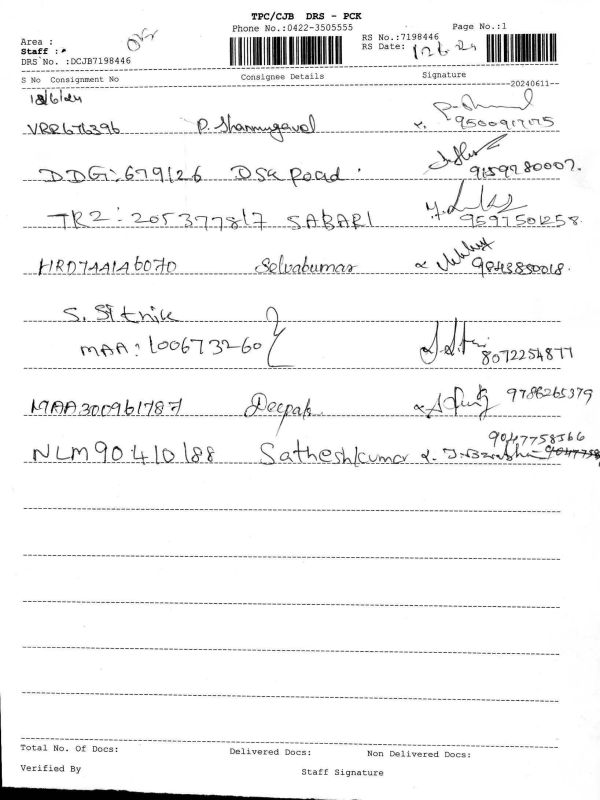 TPC/CJB DRS - PCK
Phone No.:0422-3505555 Page No.:1
Area : RS No.:7198446
Staff : RS Date: 12/6-24
DRS No. :DCJB7198446
S No Consignment No Consignee Details Signature
20240611
12/6/24
VRR676396 P. Shanmugavel 9500917175
DDG:679126 DSK Road. 9159780007.
TRZ:205377817 SABARI 9597501258
HRD7AA1A6070 Selvakumar 9843850018.
S. SIthik
MAA:100673260 8072254877
MAA300961787 Deepak 9786265379
9047758366
NLM90410188 Satheshkumar
Total No. Of Docs: Delivered Docs: Non Delivered Docs:
Verified By Staff Signature